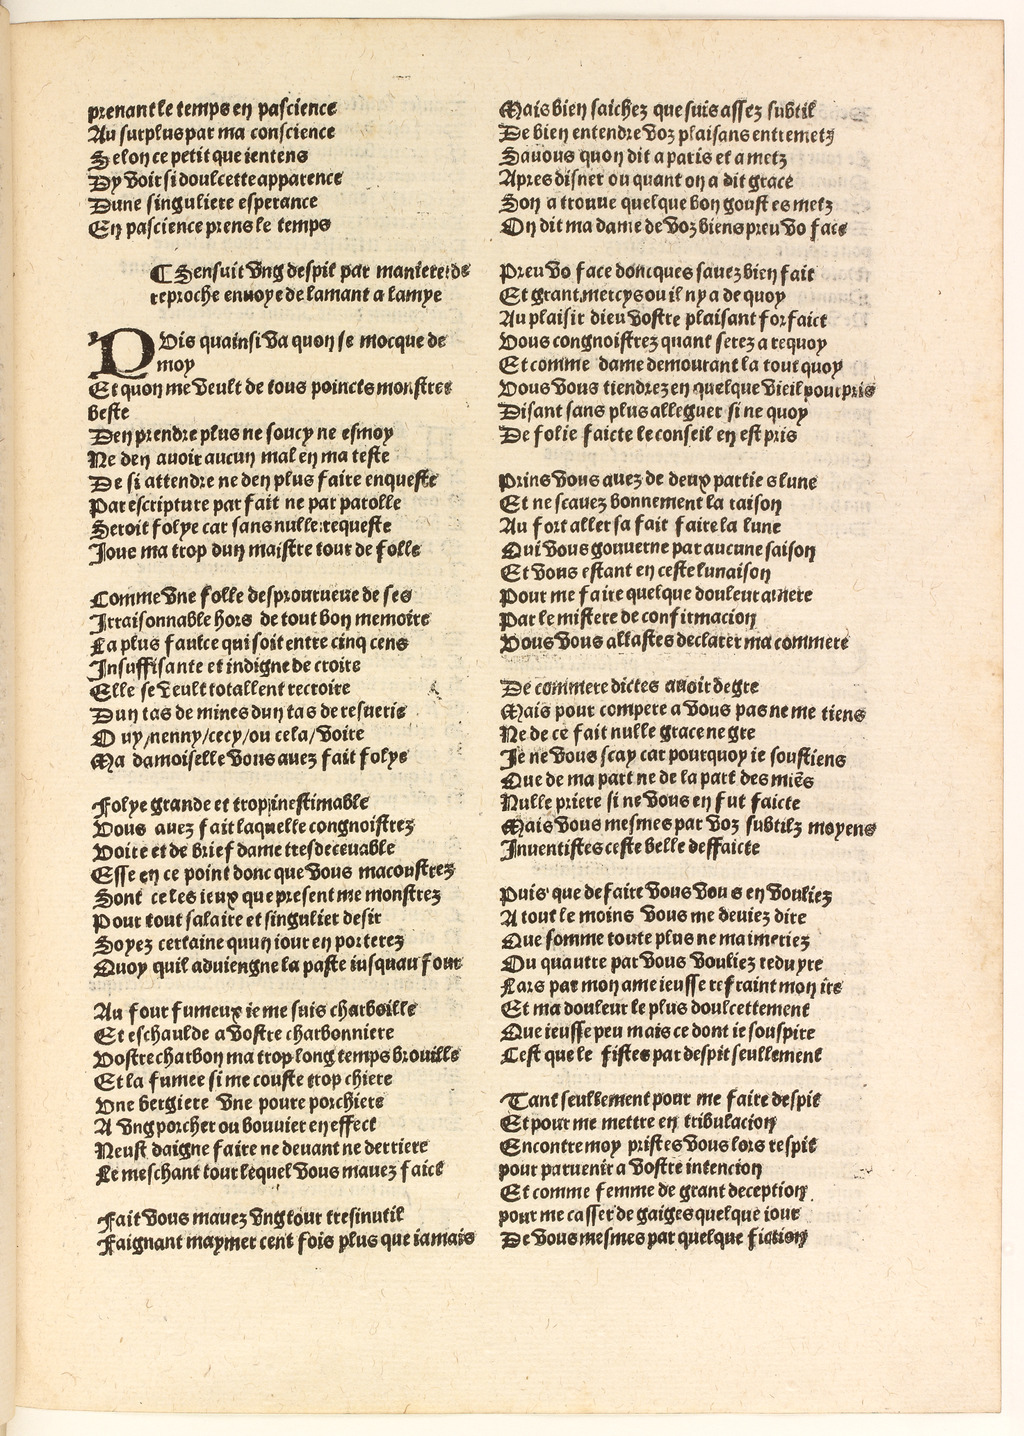 prenant le temps en pascience
Au surplus par ma conscience
Selon ce petit que ientens
Dy voir si doulcette apparence
Dune singuliere esperance
En pascience prens le temps
¶ Sensuit vng despit par maniere de
reproche enuoye de lamant a lamye
PVis quainsi va quon se mocque de
moy
Et quon me veult de tous poinctz monstrer
beste
Den prendre plus ne soucy ne esmoy
Ne den auoir aucun mal en ma teste
De si attendre ne den plus faire enqueste
Par escripture par fait ne par parolle
Seroit folye car sans nulle requeste
Joue ma trop dun maistre tour de folle
Comme vne folle desprourueue de ses
Jrraisonnable hors de tout bon memoire
La plus faulce qui soit entre cinq cens
Jnsuffisante et indigne de croire
Elle se veult totallent recroire
Dun tas de mines dun tas de resuerie
Ouy/nenny/cecy/ou cela/voire
Ma damoiselle vous auez fait folye
Folye grande et trop inestimable
Vous auez fait laquelle congnoistrez
Voire et de brief dame tresdeceuable
Esse en ce point donc que vous macoustrez
Sont ce les ieux que present me monstrez
Pour tout salaire et singulier desir
Soyez certaine quun iour en porterez
Quoy quil aduiengne la paste iusquau four
Au four fumeux ie me suis charboille
Et eschaulde a vostre charbonniere
Vostre charbon ma trop long temps brouille
Et la fumee si me couste trop chiere
Vne bergiere vne poure porchiere
A vng porcher ou bouuier en effect
Neust daigne faire ne deuant ne derriere
Le meschant tour lequel vous mauez faict
Fait vous mauez vng tour tresinutil
Faignant maymer cent fois plus que iamais
Mais bien saichez que suis assez subtil
De bien entendre voz plaisans entremetz
Sauous quon dit a paris et a metz
Apres disner ou quant on a dit grace
Son a trouue quelque bon goust es metz
On dit ma dame de voz biens preu vo face
Preu vo face doncques sauez bien fait
Et grant mercys ou il ny a de quoy
Au plaisir dieu vostre plaisant forfaict
Vous congnoistrez quant serez a requoy
Et comme dame demourant la tout quoy
Vous vous tiendrez en quelque vieil pourpris
Disant sans plus alleguer si ne quoy
De folie faicte le conseil en est pris
Prins vous auez de deux parties lune
Et ne scauez bonnement la raison
Au fort aller sa fait faire la lune
Qui vous gouuerne par aucune saison
Et vous estant en ceste lunaison
Pour me faire quelque douleur amere
Par le mistere de confirmacion
Vous vous allastes declarer ma commere
De commere dictes auoir degre
Mais pour compere a vous pas ne me tiens
Ne de ce fait nulle grace ne gre
Je ne vous scay car pourquoy ie soustiens
Que de ma part ne de la part des miēs
Nulle priere si ne vous en fut faicte
Mais vous mesmes par voz subtilz moyens
Jnuentistes ceste belle deffaicte
Puis que de faire vous vous en vouliez
A tout le moins vous me deuiez dire
Que somme toute plus ne maimeriez
Ou quautre par vous vouliez reduyre
Lars par mon ame ieusse refraint mon ire
Et ma douleur le plus doulcettement
Que ieusse peu mais ce dont ie souspire
Cest que le fistes par despit seullement
Tant seullement pour me faire despit
Et pour me mettre en tribulacion
Encontre moy pristes vous lors respit
pour paruenir a vostre intencion
Et comme femme de grant deception
pour me casser de gaiges quelque iour
De vous mesmes par quelque fiction